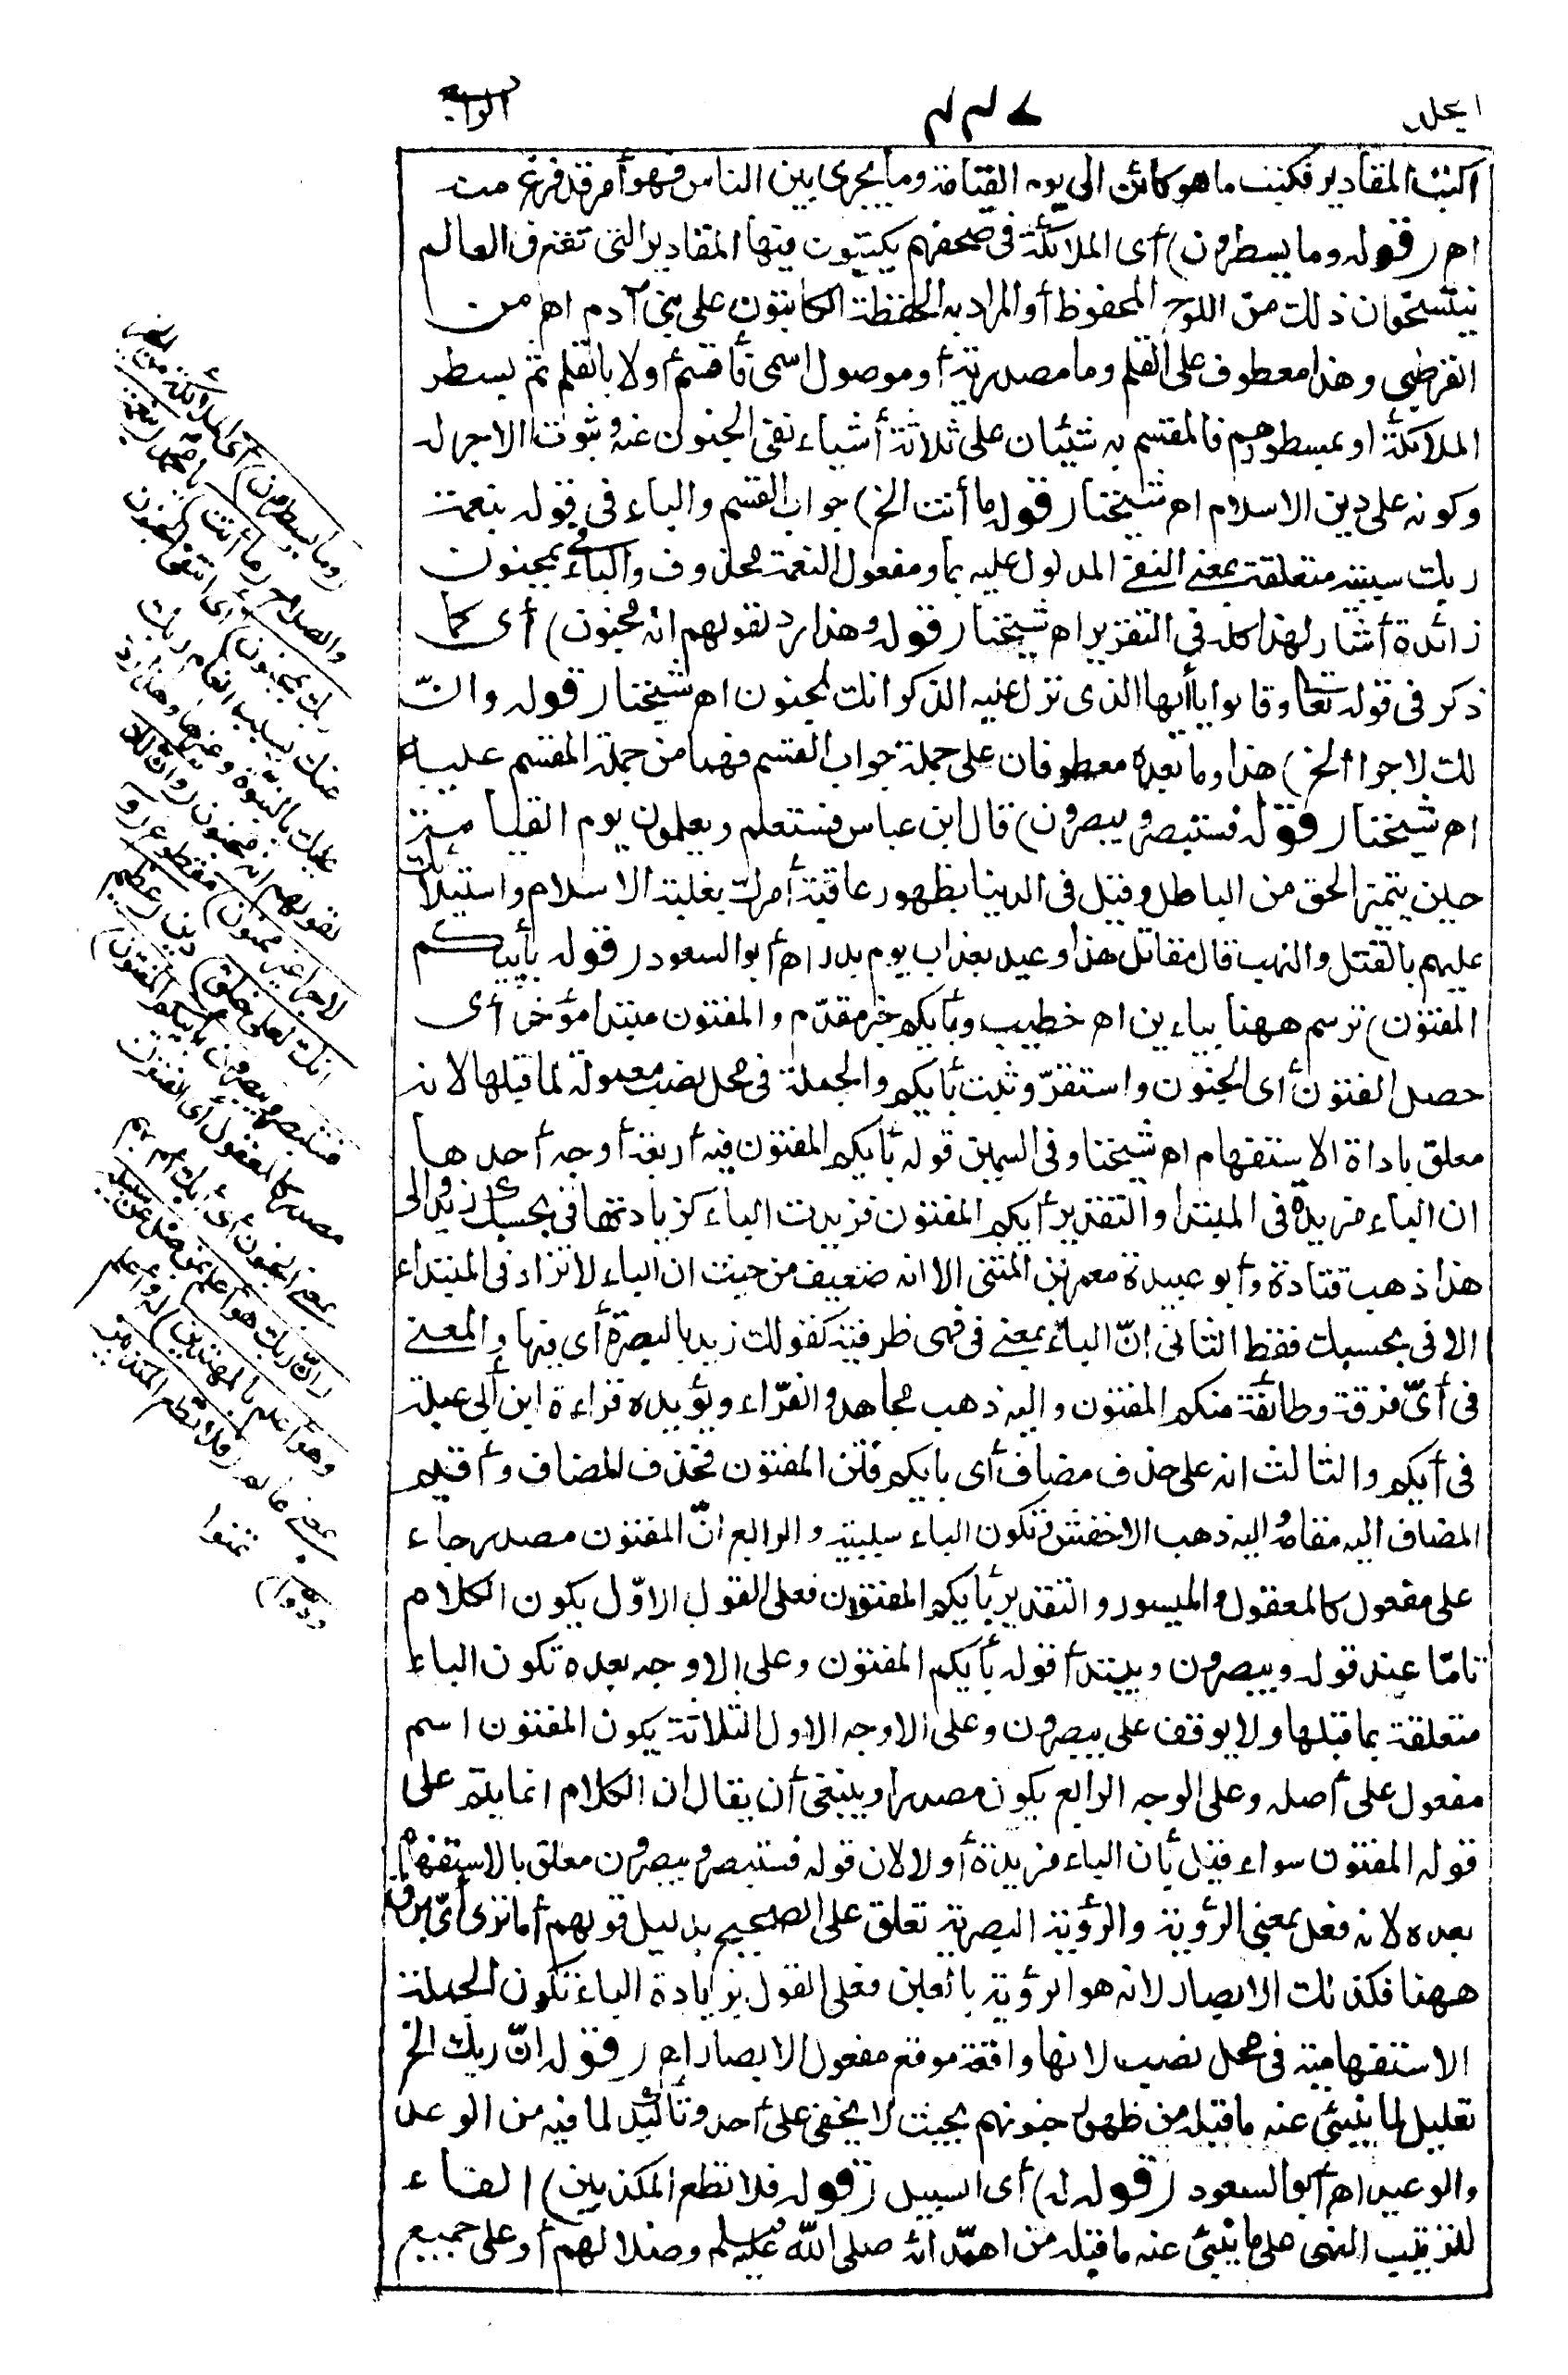 الجلد
٤٣٧
الرابع
اكتب المقادير فكتب ما هو كائن الى يوم القيامة وما يجرى بين الناس فهو أمر قد فرغ منه
اه (قوله وما يسطرون) أى الملائكة فى صحفهم يكتبون فيها المقادير التى تقع فى العالم
ينتسخون ذلك من اللوح المحفوظ أو المراد به الحفظة الكاتبون على بنى آدم اه من
القرطبى وهذا معطوف على القلم وما مصدرية أو موصول اسمى فأقسم أولا بالقلم ثم بسطر
الملائكة أو بمسطورهم فالمقسم به شيئان على ثلاثة أشياء نفى الجنون عنه وثبوت الاجر له
وكونه على دين الاسلام اه شيخنا (قوله ما أنت الخ) جواب القسم والباء فى قوله بنعمة
ربك سببية متعلقة بمعنى النفى المدلول عليه بما ومفعول النعمة محذوف والباء فى بمجنون
زائدة أشار لهذا كله فى التقرير اه شيخنا (قوله وهذا رد لقولهم انه مجنون) أى كما
ذكر فى قوله تعالى وقالوا ياأيها الذى نزل عليه الذكر انك لمجنون اه شيخنا (قوله وانّ
لك لاجرا الخ) هذا وما بعده معطوفان على جملة جواب القسم فهما من جملة المقسم عليه
اه شيخنا (قوله فستبصر ويبصرون) قال ابن عباس فستعلم ويعلمون يوم القيامة
حين يتميز الحق من الباطل وقيل فى الدنيا بظهور عاقبة أمرك بغلبة الاسلام واستيلائك
عليهم بالقتل والنهب قال مقاتل هذا وعيد بعذاب يوم بدر اه أبو السعود (قوله بأييكم
المفتون) ترسم ههنا بياءين اه خطيب وبأيكم خبر مقدّم والمفتون مبتدا مؤخر أى
حصل الفتون أى الجنون واستقرّ وثبت بأيكم والجملة فى محل نصب معمولة لما قبلها لانه
معلق باداة الاستفهام اه شيخنا وفى السمين قوله بأيكم المفتون فيه أربعة أوجه أحدها
ان الباء مزيدة فى المبتدا والتقدير أيكم المفتون فزيدت الباء كزيادتها فى بحسبك زيد والى
هذا ذهب قتادة وأبو عبيدة معمر بن المثنى الا انه ضعيف من حيث ان الباء لا تزاد فى المبتداء
الا فى بحسبك فقط الثانى انّ الباء بمعنى فى فهى ظرفية كقولك زيد بالبصرة أى فيها والمعنى
فى أىّ فرقة وطائفة منكم المفتون واليه ذهب مجاهد والفرّاء ويؤيده قراءة ابن أبى عبلة
فى أيكم والثالث انه على حذف مضاف أى بايكم فتن المفتون فحذف المضاف وأقيم
المضاف اليه مقامه واليه ذهب الاخفش وتكون الباء سببية والرابع انّ المفتون مصدر جاء
على مفعول كالمعقول والميسور والتقدير بأيكم المفتون فعلى القول الاوّل يكون الكلام
تامّا عند قوله ويبصرون ويبتدأ قوله بأيكم المفتون وعلى الاوجه بعده تكون الباء
متعلقة بما قبلها ولا يوقف على يبصرون وعلى الاوجه الاول الثلاثة يكون المفتون اسم
مفعول على أصله وعلى الوجه الرابع يكون مصدرا وينبغى أن يقال ان الكلام انما يتم على
قوله المفتون سواء قيل بأن الباء مزيدة أو لا لان قوله فستبصر ويبصرون معلق بالاستفهام
بعده لانه فعل بمعنى الرؤية والرؤية البصرية تعلق على الصحيح بدليل قولهم أما ترى أىّ برق
ههنا فكذلك الابصار لانه هو الرؤية بالعين فعلى القول بزيادة الباء تكون الجملة
الاستفهامية فى محل نصب لانها واقعة موقع مفعول الابصار اه (قوله انّ ربك الخ
تعليل لما ينبئ عنه ما قبله من ظهور جنونهم بحيث لا يخفى على أحد وتأكيد لما فيه من الوعد
والوعيد اه أبو السعود (قوله له) أى السبيل (قوله فلا تطع المكذبين) الفاء
لترتيب النهى على ما ينبئ عنه ما قبله من اهتدائه صلى الله عليه وسلم وضلالهم أو على جميع
(وما يسطرون) أى الملائكة من الخير
والصلاح (ما أنت) يا محمد (بنعمة
ربك بمجنون) أى انتفى الجنون
عنك بسبب انعام ربك
عليك بالنبوة وغيرها وهذا رد
لقولهم انه مجنون (وان لك
لاجرا غير ممنون) مقطوع (و
انك لعلى خلق) دين (عظيم
فستبصر ويبصرون بأييكم المفتون)
مصدر كالمعقول أى الفتون
بمعنى الجنون أى أبك أم بهم
(انّ ربك هو أعلم بمن ضل عن سبيله
وهو أعلم بالمهتدين) له وأعلم
بمعنى عالم (فلا تطع المكذبين
ودّوا) تمنوا